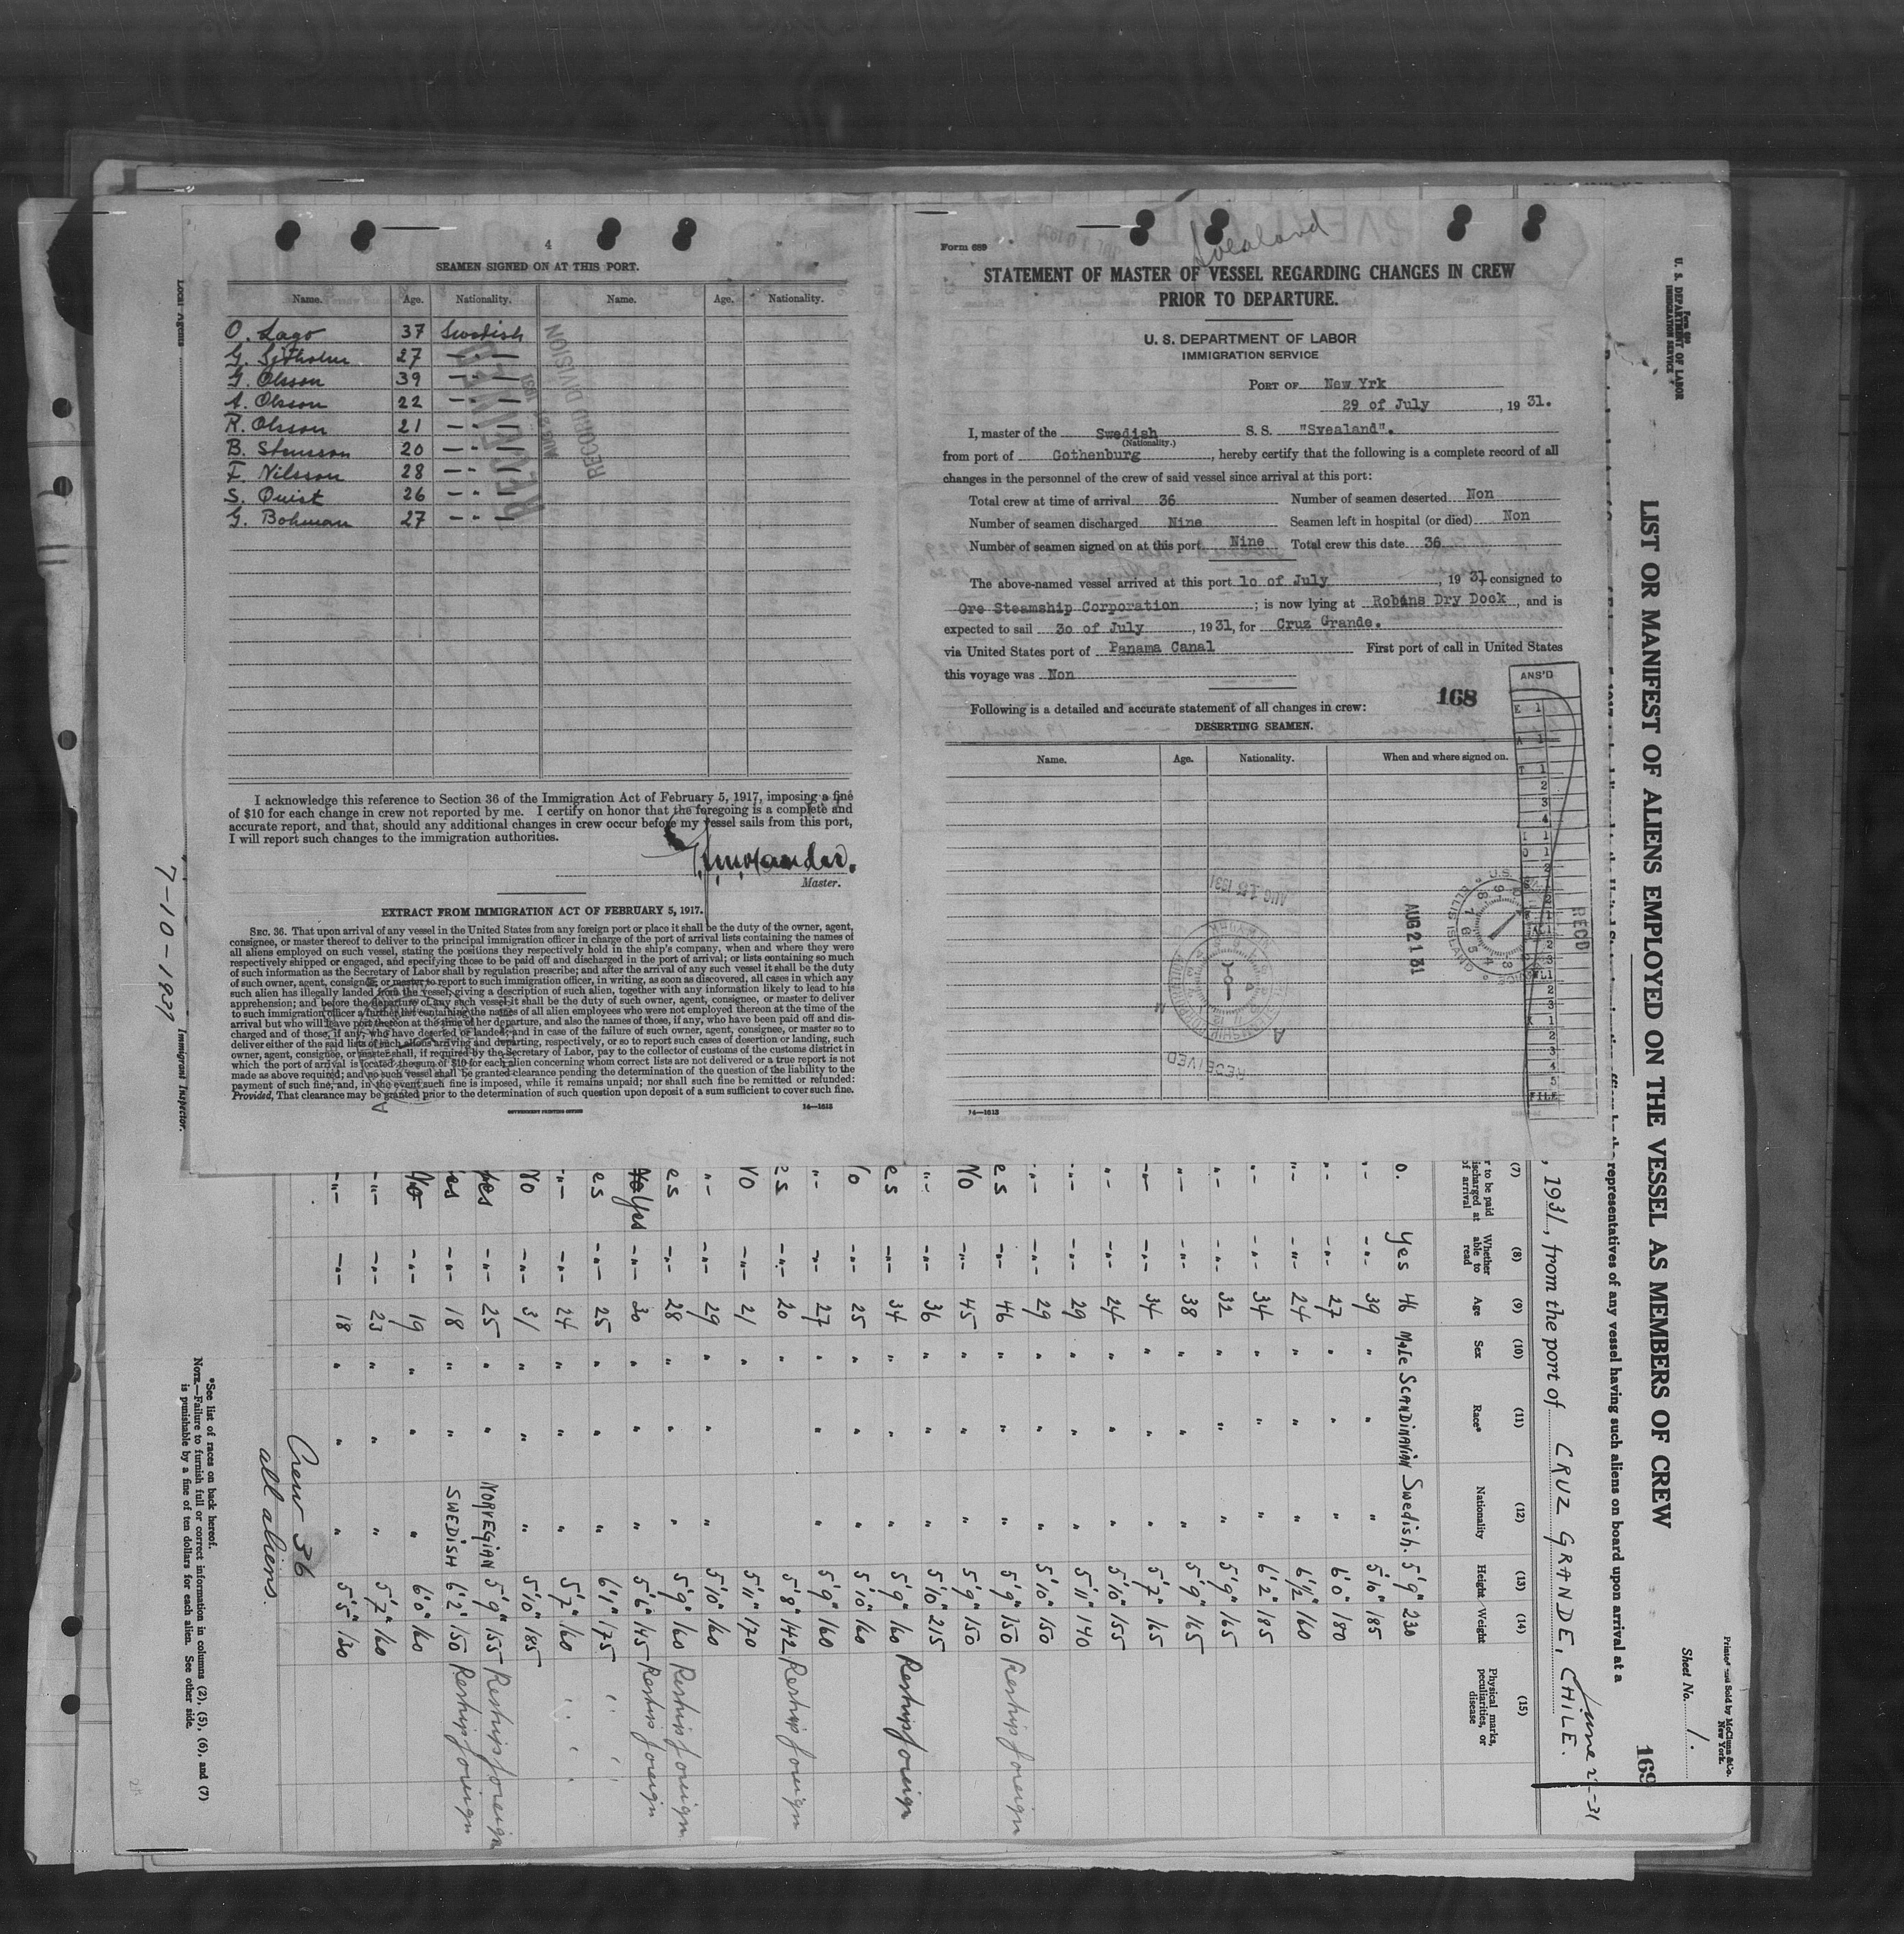 4
SEAMEN SIGNED ON AT THIS PORT.
Name. Age. Nationality. Name. Age. Nationality.
O. Lago 37 Swedish
G. Sjöholm 27 -"-
G. Olsson 39 -"-
A. Olsson 22 -"-
R. Olsson 21 -"-
B. Stensson 20 -"-
F. Nilsson 28 -"-
S. Quist 26 -"-
G. Bohman 27 -"-
RECORD DIVISION
I acknowledge this reference to Section 36 of the Immigration Act of February 5, 1917, imposing a fine
of $10 for each change in crew not reported by me. I certify on honor that the foregoing is a complete and
accurate report, and that, should any additional changes in crew occur before my vessel sails from this port,
I will report such changes to the immigration authorities.
Master.
EXTRACT FROM IMMIGRATION ACT OF FEBRUARY 5, 1917.
SEC. 36. That upon arrival of any vessel in the United States from any foreign port or place it shall be the duty of the owner, agent,
consignee, or master thereof to deliver to the principal immigration officer in charge of the port of arrival lists containing the names of
all aliens employed on such vessel, stating the positions they respectively hold in the ship's company, when and where they were
respectively shipped or engaged, and specifying those to be paid off and discharged in the port of arrival; or lists containing so much
of such information as the Secretary of Labor shall by regulation prescribe; and after the arrival of any such vessel it shall be the duty
of such owner, agent, consignee, or master to report to such immigration officer, in writing, as soon as discovered, all cases in which any
such alien has illegally landed from the vessel, giving a description of such alien, together with any information likely to lead to his
apprehension; and before the departure of any such vessel it shall be the duty of such owner, agent, consignee, or master to deliver
to such immigration officer a further list containing the names of all alien employees who were not employed thereon at the time of the
arrival but who will leave port thereon at the time of her departure, and also the names of those, if any, who have been paid off and dis-
charged and of those, if any, who have deserted or landed; and in case of the failure of such owner, agent, consignee, or master so to
deliver either of the said lists of such aliens arriving and departing, respectively, or so to report such cases of desertion or landing, such
owner, agent, consignee, or master shall, if required by the Secretary of Labor, pay to the collector of customs of the customs district in
which the port of arrival is located the sum of $10 for each alien concerning whom correct lists are not delivered or a true report is not
made as above required; and no such vessel shall be granted clearance pending the determination of the question of the liability to the
payment of such fine, and, in the event such fine is imposed, while it remains unpaid; nor shall such fine be remitted or refunded:
Provided, That clearance may be granted prior to the determination of such question upon deposit of a sum sufficient to cover such fine.
GOVERNMENT PRINTING OFFICE
14—1613
Form 689
Svealand
STATEMENT OF MASTER OF VESSEL REGARDING CHANGES IN CREW
PRIOR TO DEPARTURE.
U. S. DEPARTMENT OF LABOR
IMMIGRATION SERVICE
PORT OF New Yrk
29 of July, 1931.
I, master of the Swedish S. S. "Svealand".
(Nationality.)
from port of Gothenburg, hereby certify that the following is a complete record of all
changes in the personnel of the crew of said vessel since arrival at this port:
Total crew at time of arrival 36 Number of seamen deserted Non
Number of seamen discharged Nine Seamen left in hospital (or died) Non
Number of seamen signed on at this port Nine Total crew this date 36
The above-named vessel arrived at this port 1o of July, 1931 consigned to
Ore Steamship Corporation; is now lying at Robins Dry Dock, and is
expected to sail 3o of July, 1931, for Cruz Grande.
via United States port of Panama Canal First port of call in United States
this voyage was Non
168
Following is a detailed and accurate statement of all changes in crew:
DESERTING SEAMEN.
Name. Age. Nationality. When and where signed on.
ANS'D
FILE
REC'D
AUG 21 31
AUG 18 1931
RECEIVED
14—1613
Local Agents
7-10-1931
Immigrant Inspector.
Form 689
U. S. DEPARTMENT OF LABOR
IMMIGRATION SERVICE
Printed and Sold by McClunn & Co.
New York.
Sheet No. 1.
169
LIST OR MANIFEST OF ALIENS EMPLOYED ON THE VESSEL AS MEMBERS OF CREW
representatives of any vessel having such aliens on board upon arrival at a
, 1931, from the port of CRUZ GRANDE, CHILE. June 2-31
(7) (8) (9) (10) (11) (12) (13) (14) (15)
Whether able to read Age Sex Race* Nationality Height Weight Physical marks, peculiarities, or disease
o. Yes 46 Male SCANDINAVIAN Swedish. 5'9" 230
-"- -"- 39 " " " 5'10" 185
-"- -"- 27 " " " 6'0" 180
-"- -"- 24 " " " 6'1/2" 160
-"- -"- 34 " " " 6'2" 185
-"- -"- 32 " " " 5'9" 165
-"- -"- 38 " " " 5'9" 165
-"- -"- 34 " " " 5'7" 165
-"- -"- 24 " " " 5'10" 155
-"- -"- 29 " " " 5'11" 140
-"- -"- 29 " " " 5'10" 150
es -"- 46 " " " 5'9" 150 Reship foreign
No -"- 45 " " " 5'9" 150
-"- -"- 36 " " " 5'10" 215
es -"- 34 " " " 5'9" 160 Reship foreign
o -"- 25 " " " 5'10" 160
-"- -"- 27 " " " 5'9" 160
es -"- 20 " 5'8" 142 Reship foreign
No -"- 21 " 5'11" 170
-"- -"- 29 " " " 5'10" 160
es -"- 28 " " " 5'9" 160 Reship foreign
No Yes -"- 30 " " " 5'6" 145 Reship foreign
es -"- 25 " " " 6'1" 175 " "
-"- -"- 24 " " " 5'7" 160 " "
No -"- 31 " " " 5'10" 185
Yes -"- 25 " " NORVEGIAN 5'9" 155 Reship foreign
es -"- 18 " " SWEDISH 6'2" 150 Reship foreign
No -"- 19 " " " 6'0" 160
-"- -"- 23 " " " 5'7" 160
-"- -"- 18 " " " 5'5" 130
Crew 36
all aliens.
*See list of races on back hereof.
NOTE.—Failure to furnish full or correct information in columns (2), (5), (6), and (7)
is punishable by a fine of ten dollars for each alien. See other side.